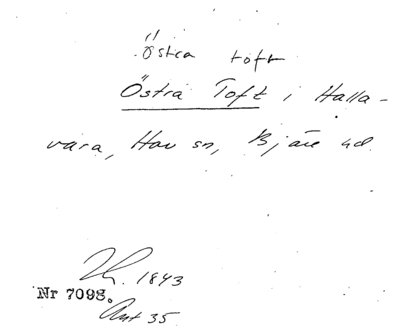 Östra toft
Östra Toft i Halla-
vara, Hov sn, Bjäre hd.
1843
Nr 7098.
Akt 35